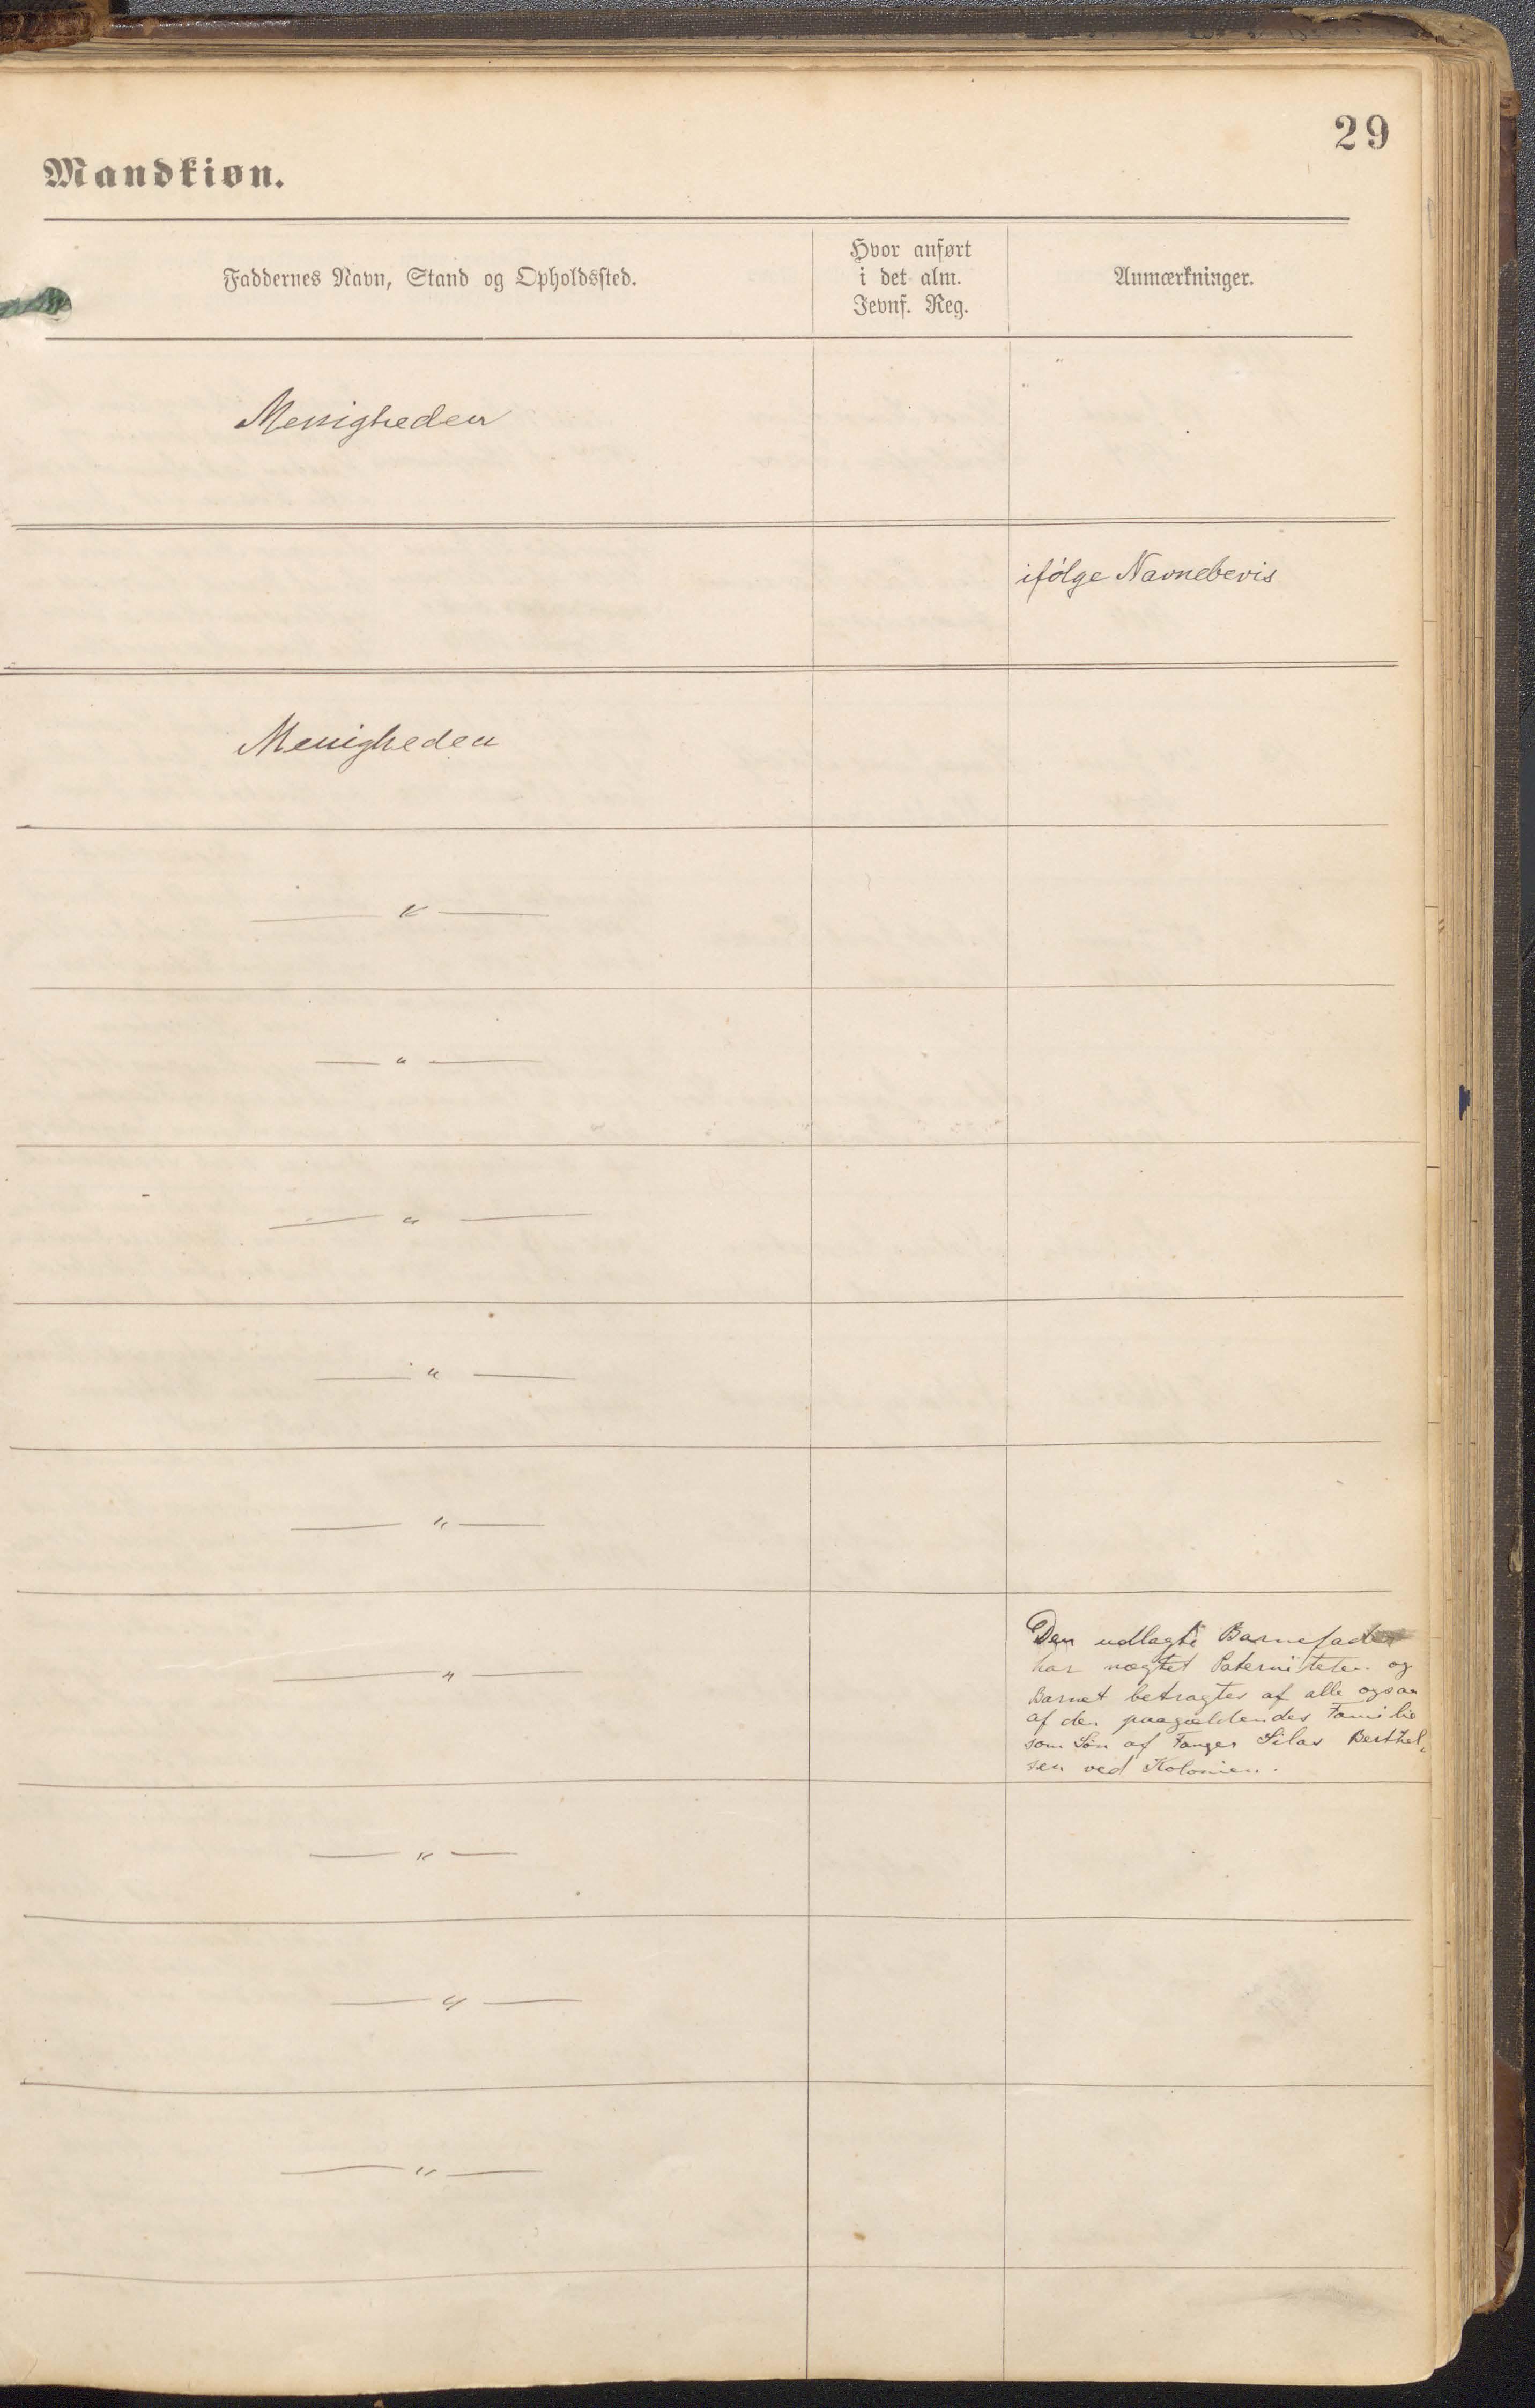 29
Mandkiøn.
Faddernes Navn, Stand og Opholdssted.
Hvor anført
i det alm.
Jevnf. Reg.
Anmærkninger.
Menigheden
ifølge Navnebevis
Menigheden
— " —
— " —
— " —
— " —
— " —
— " —
Den udlagte Barnefader
har nægtet Paterniteten og
Barnet betragtes af alle ogsaa
af den paagældendes Familie
som Søn af Fanger Silas Berthel-
sen ved Kolonien.
— " —
— " —
— " —